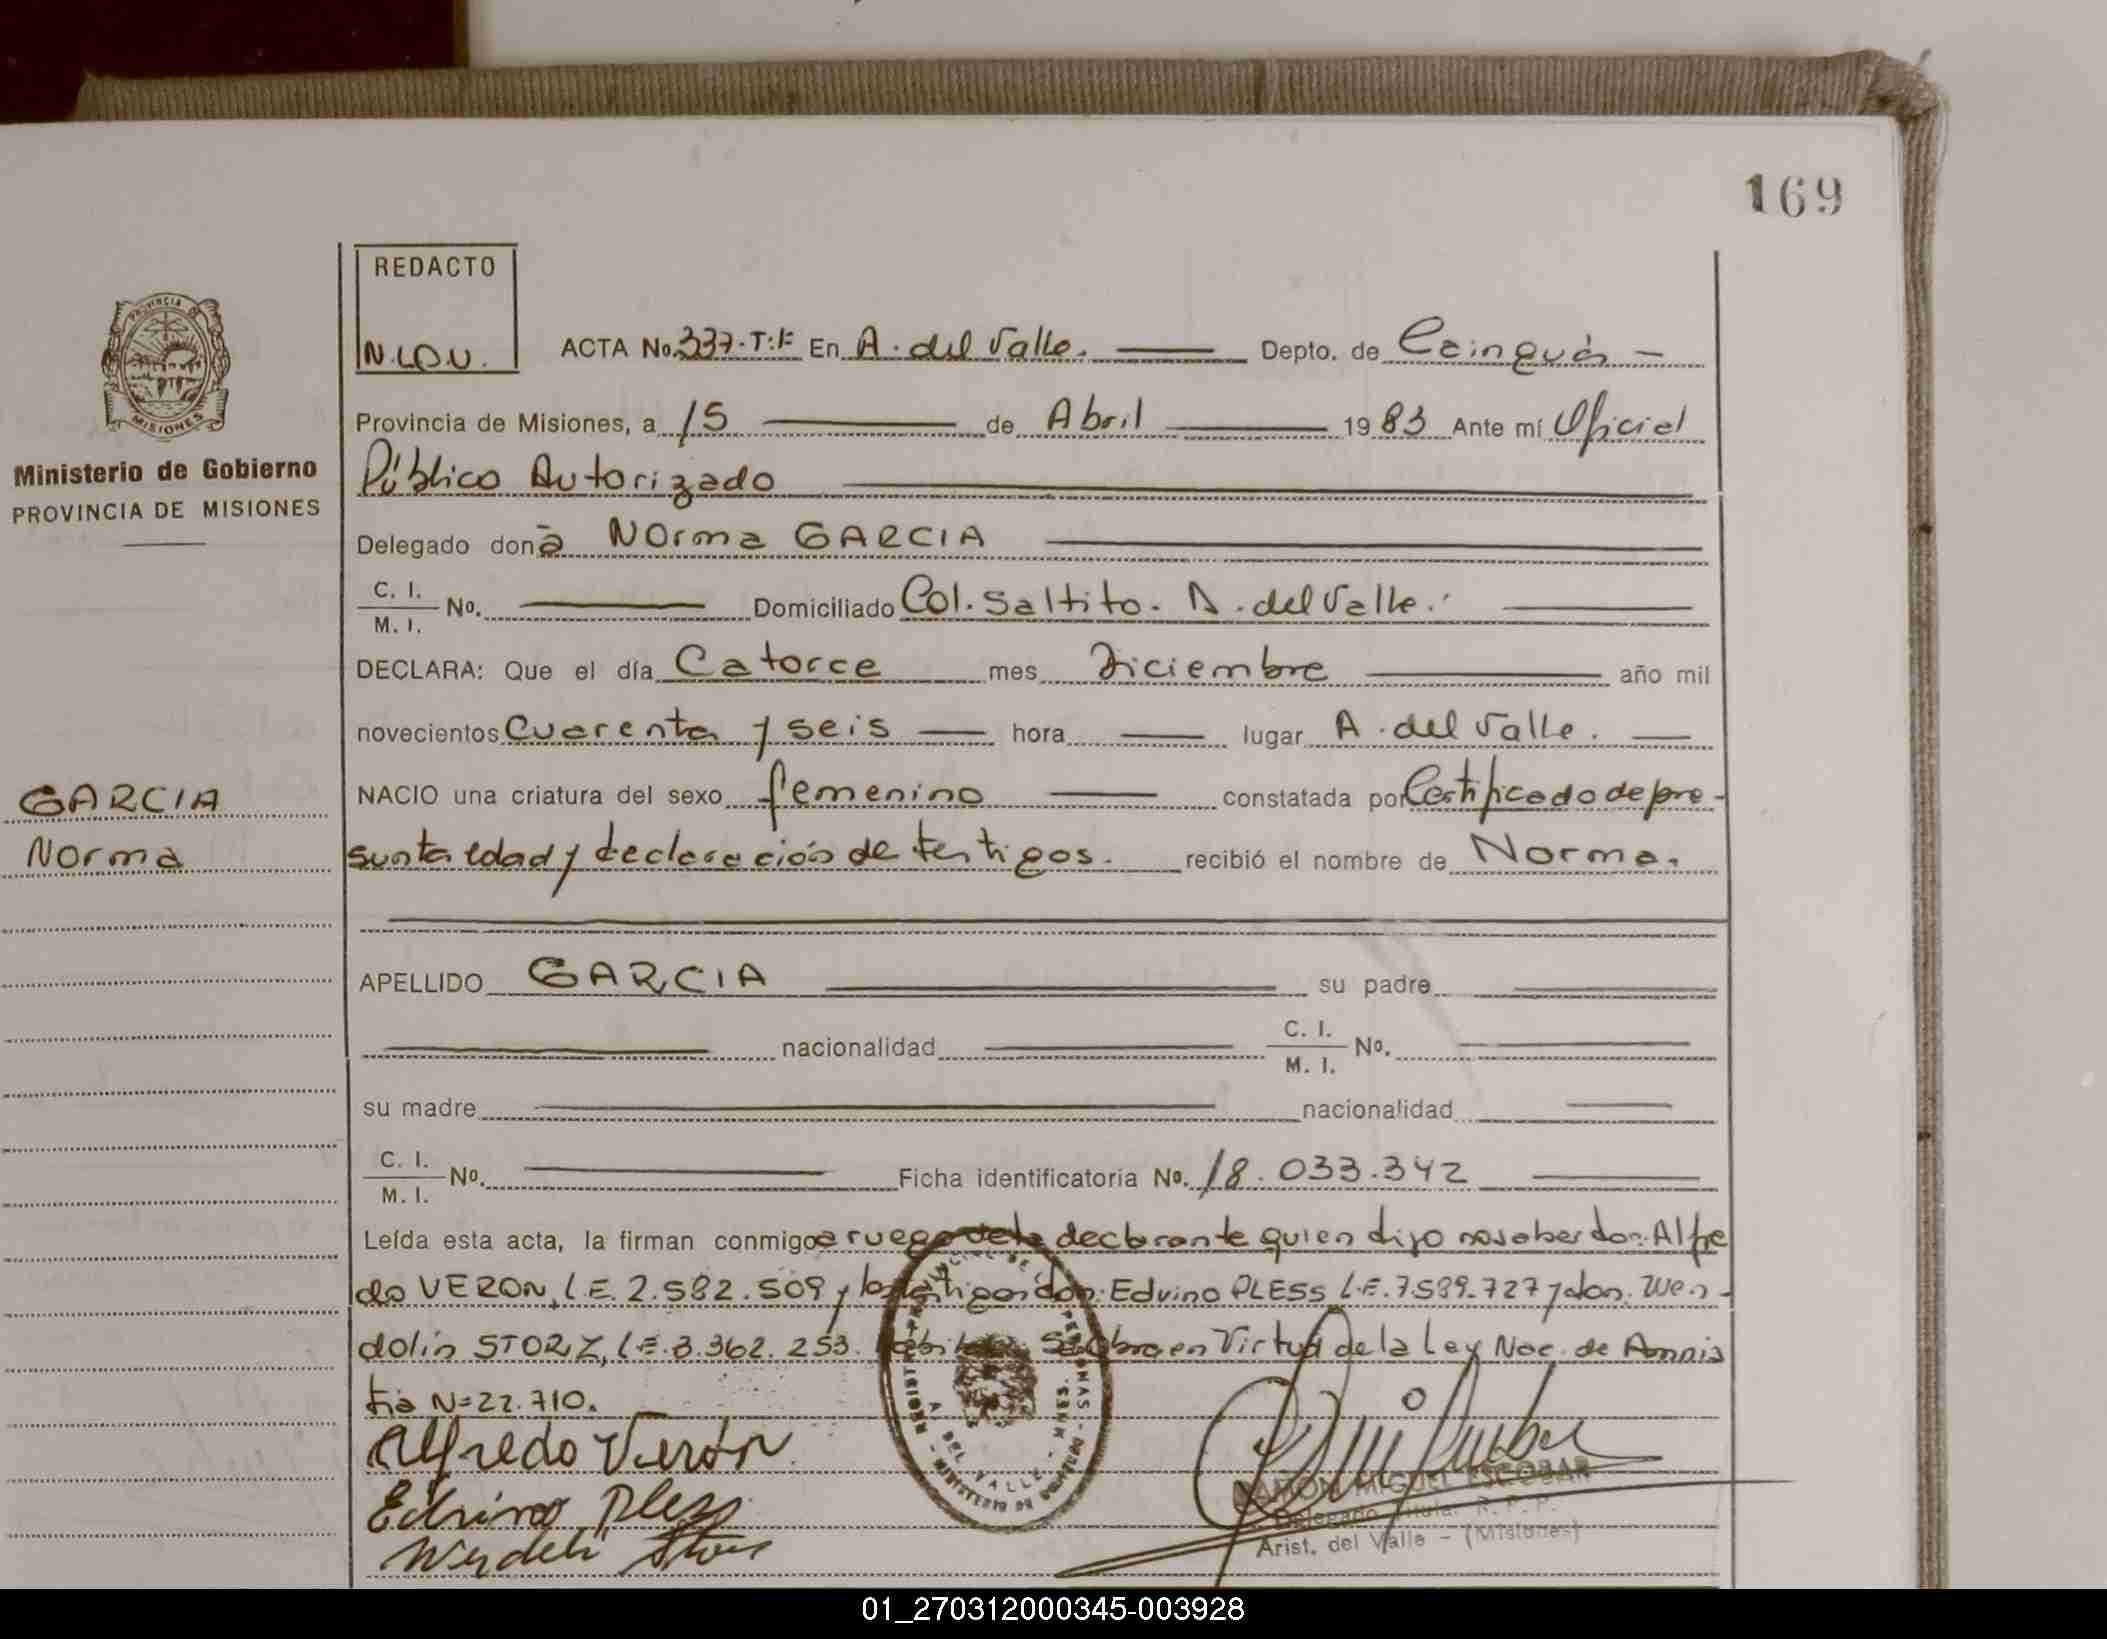 169
REDACTO
N.L.D.U.
ACTA No. 337.T:I: En A. del Valle. Depto. de Cainguás
Provincia de Misiones, a 15 de Abril 1983 Ante mí Oficial
Público Autorizado
Delegado donã Norma GARCIA
C. I.
M. I. No. Domiciliado Col. Saltito. A. del Valle.
DECLARA: Que el día Catorce mes Diciembre año mil
novecientos Cuarenta y seis hora lugar A. del Valle.
NACIO una criatura del sexo femenino constatada por Certificado de pre-
sunta edad y declaración de testigos. recibió el nombre de Norma.
APELLIDO GARCIA su padre
nacionalidad C. I.
M. I. No.
su madre nacionalidad
C. I.
M. I. No. Ficha identificatoria No. 18.033.342
Leída esta acta, la firman conmigo a ruego de la declarante quien dijo no saber don: Alfre
do VERON, L.E. 2.582.509 y los testigos don: Edvino PLESS L.E. 7.589.727 y don. Wen-
dolin STORZ, L.E. 3.362.253. Se labro en Virtud de la Ley Nac. de Amnis
tia N= 22.710.
Alfredo Verón
Edvino Pless
RAMON MIGUEL ESCOBAR
Delegado Titular R. P. P.
Arist. del Valle - (Misiones)
PROVINCIA DE
MISIONES
Ministerio de Gobierno
PROVINCIA DE MISIONES
GARCIA
Norma
01_270312000345-003928